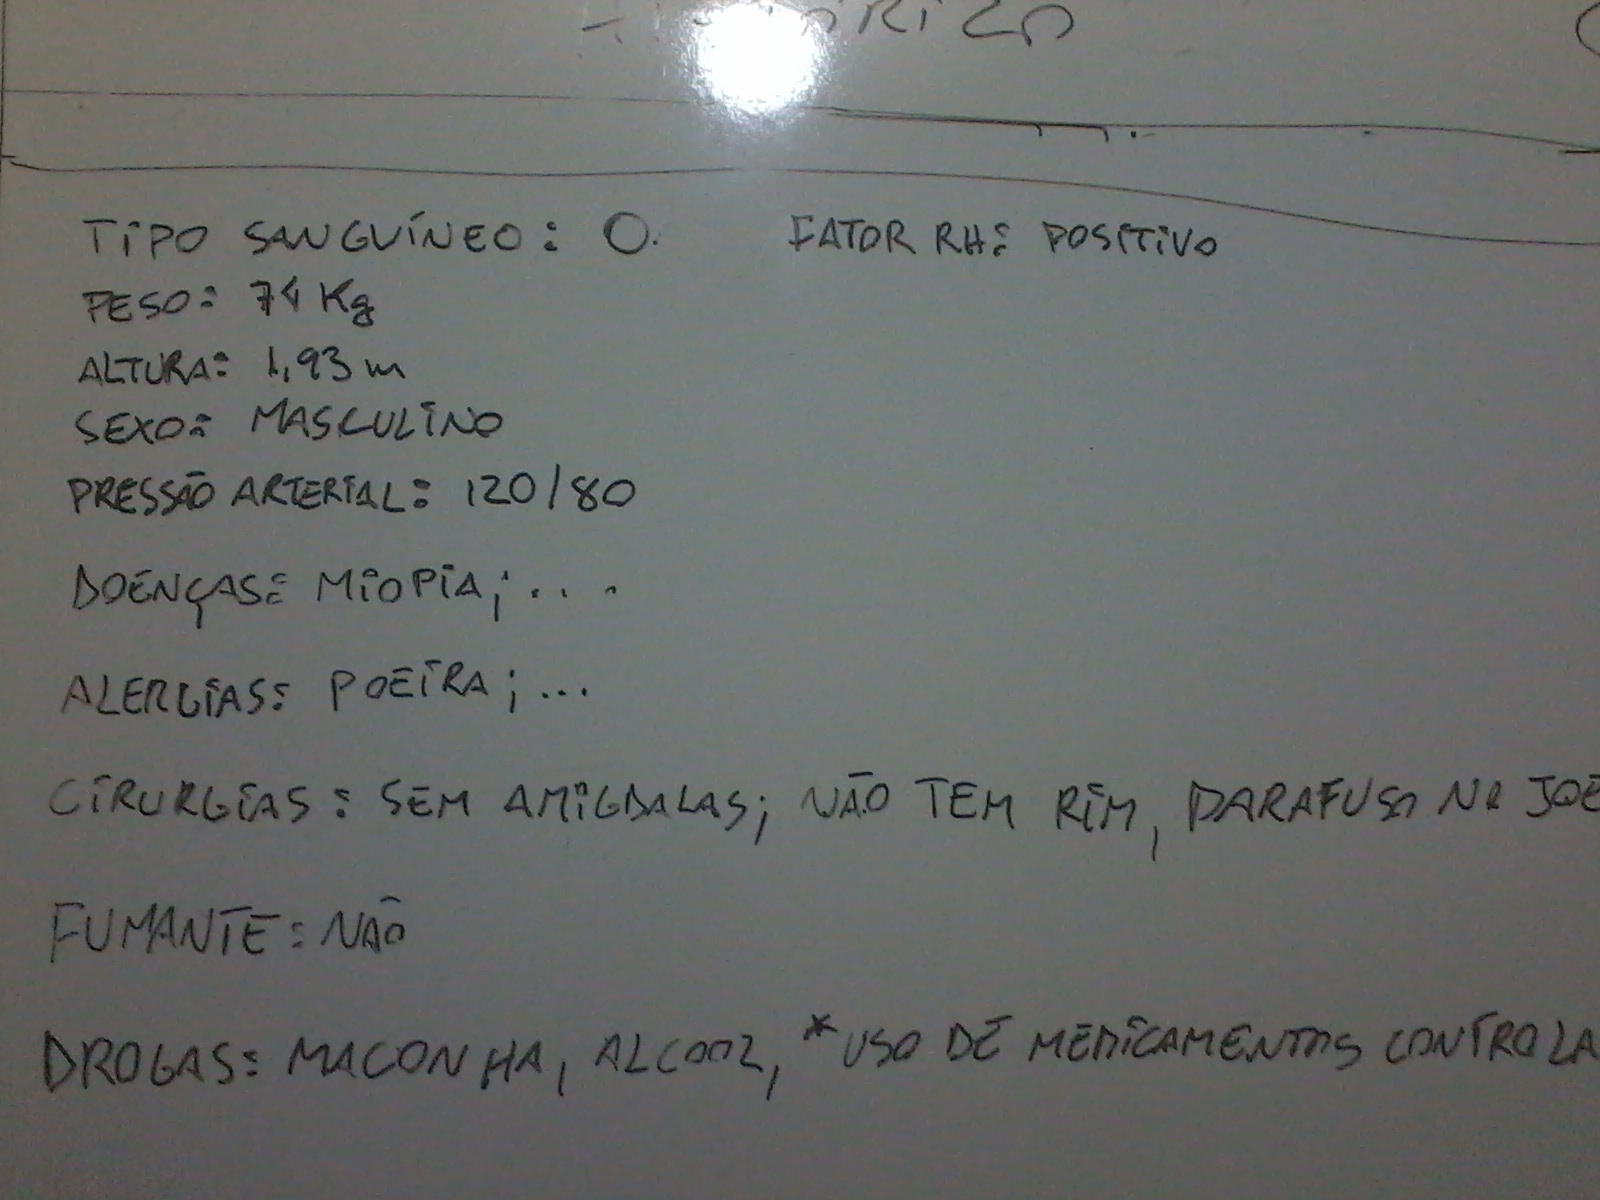 TIPO SANGUÍNEO: O. FATOR RH: POSITIVO
PESO: 74 Kg
ALTURA: 1,93 m
SEXO: MASCULINO
PRESSÃO ARTERIAL: 120/80
DOENÇAS: MIOPIA; ...
ALERGIAS: POEIRA; ...
CIRURGIAS: SEM AMIGDALAS; NÃO TEM RIM, PARAFUSO NO JOE
FUMANTE: NÃO
DROGAS: MACONHA, ALCOOL, *USO DE MEDICAMENTOS CONTROLA